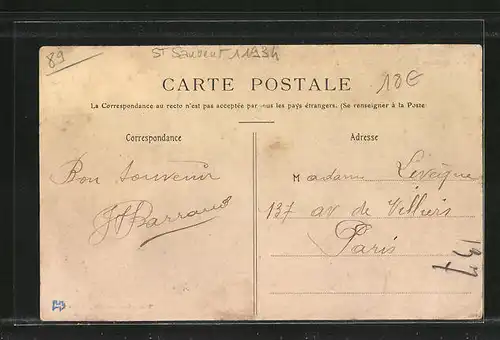 89
St Sauveur 11934
CARTE POSTALE
18€
La Correspondance au recto n'est pas acceptée par tous les pays étrangers. (Se renseigner à la Poste
Correspondance
Adresse
Bon souvenir
Madame Lévêque
137 av de Villiers
Paris
197